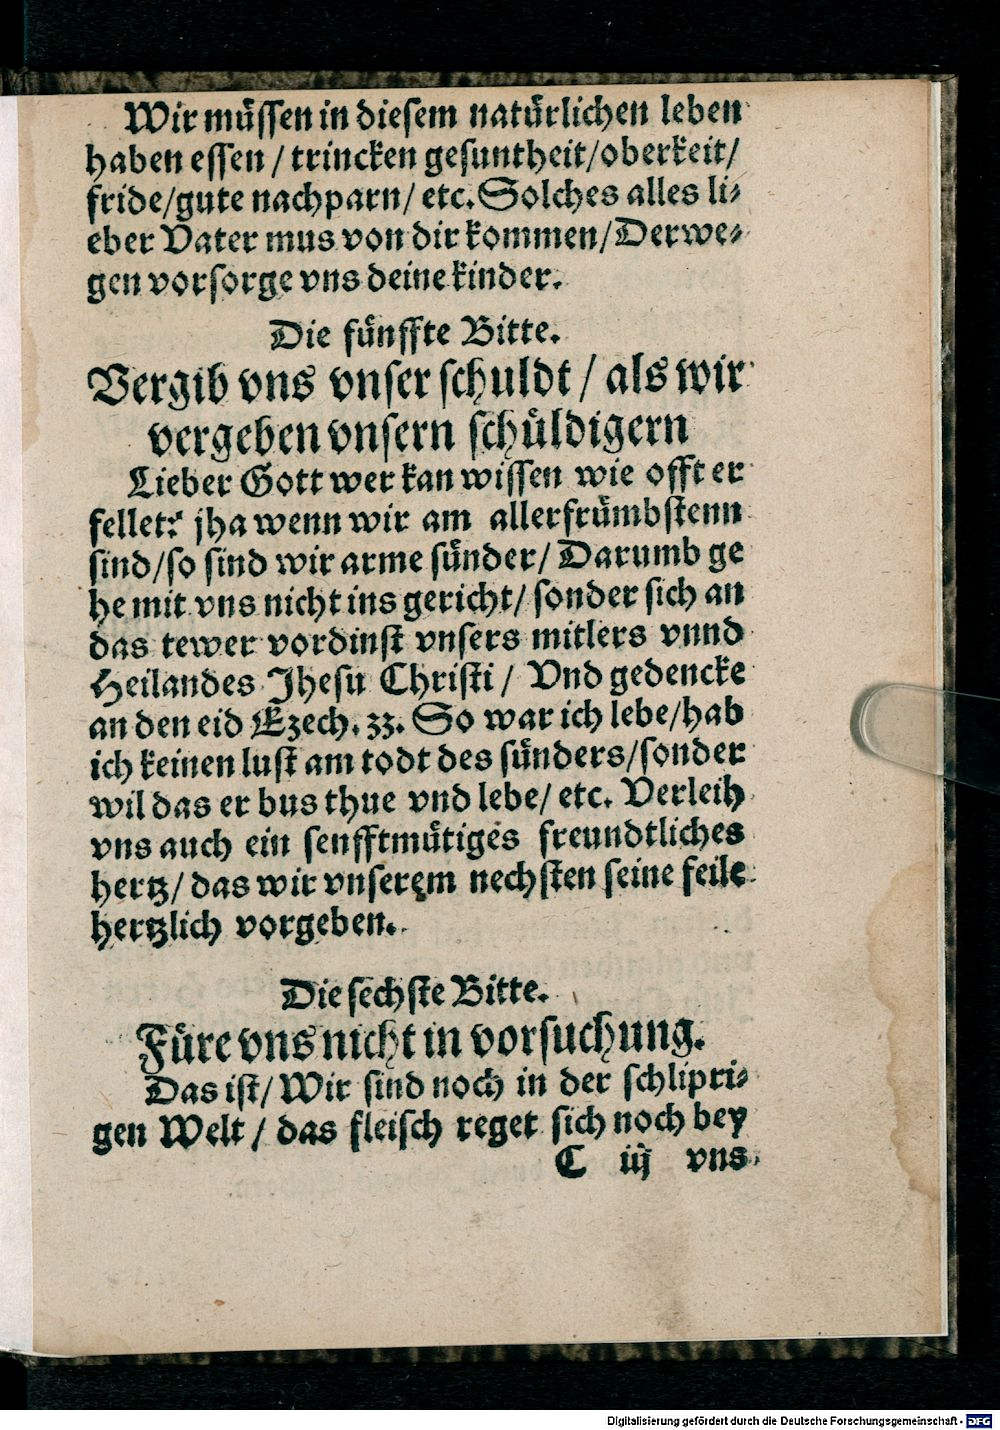 Wir müssen in diesem natürlichen leben
haben essen / trincken gesuntheit/oberkeit/
fride/gute nachparn/ etc. Solches alles li⸗
eber Vater mus von dir kommen/Derwe⸗
gen vorsorge vns deine kinder.
Die fünffte Bitte.
Vergib vns vnser schuldt / als wir
vergeben vnsern schüldigern
Lieber Gott wer kan wissen wie offt er
fellet? jha wenn wir am allerfrümbstenn
sind/so sind wir arme sünder/ Darumb ge
he mit vns nicht ins gericht/ sonder sich an
das tewer vordinst vnsers mitlers vnnd
Heilandes Jhesu Christi / Vnd gedencke
an den eid Ezech. 33. So war ich lebe/hab
ich keinen lust am todt des sünders/sonder
wil das er bus thue vnd lebe/ etc. Verleih
vns auch ein senfftmütiges freundtliches
hertz/ das wir vnserem nechsten seine feile
hertzlich vorgeben.
Die sechste Bitte.
Füre vns nicht in vorsuchung.
Das ist/ Wir sind noch in der schlipri⸗
gen Welt / das fleisch reget sich noch bey
C iij vns
Digitalisierung gefördert durch die Deutsche Forschungsgemeinschaft - DFG